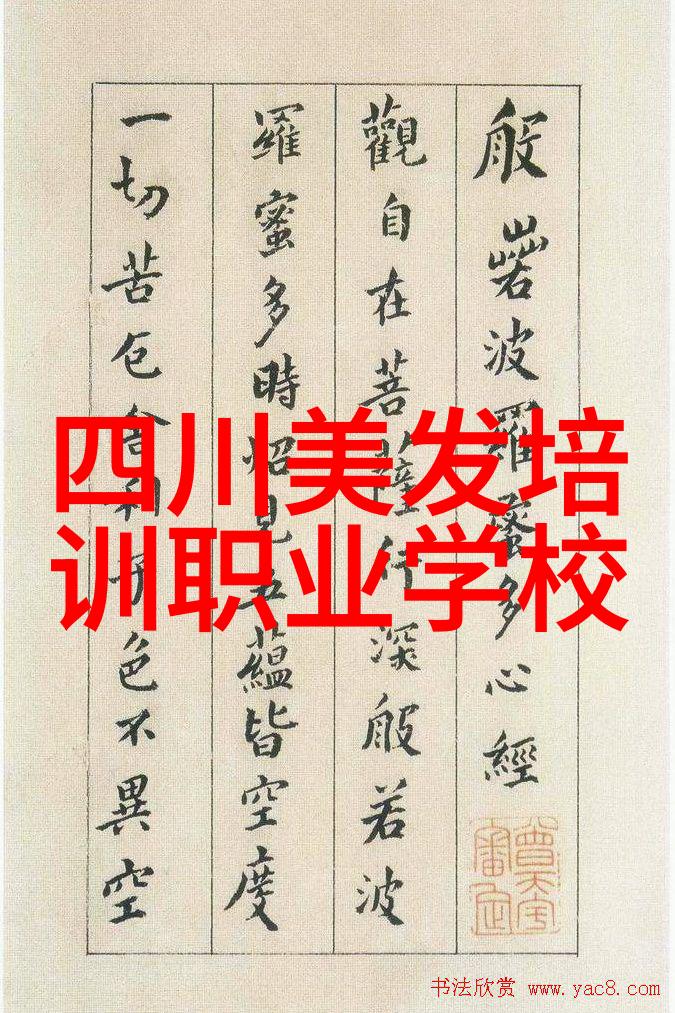 般若波羅蜜多心經
觀自在菩薩行深般若波
羅蜜多時炤見五蘊皆空度
一切苦厄舍利子色不異空
四川美发培
训职业学校
书法欣赏 www.yac8.com